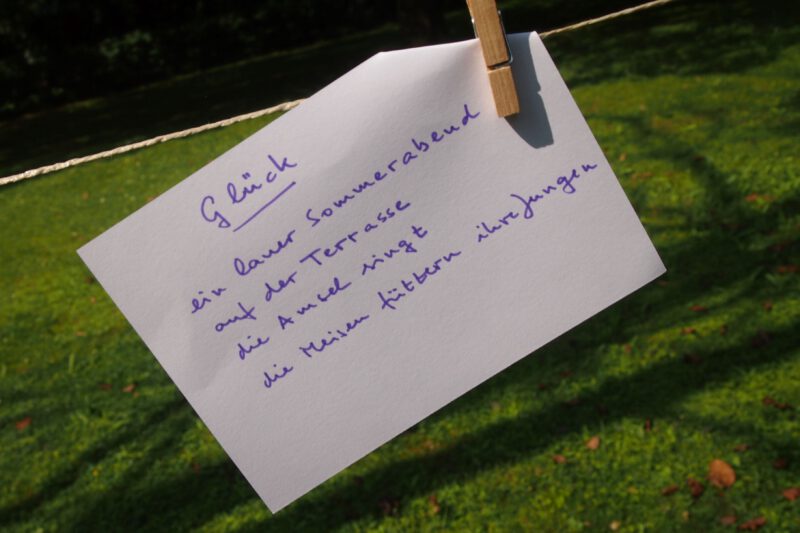 Glück
ein lauer Sommerabend
auf der Terrasse
die Amsel singt
die Meisen füttern ihre Jungen